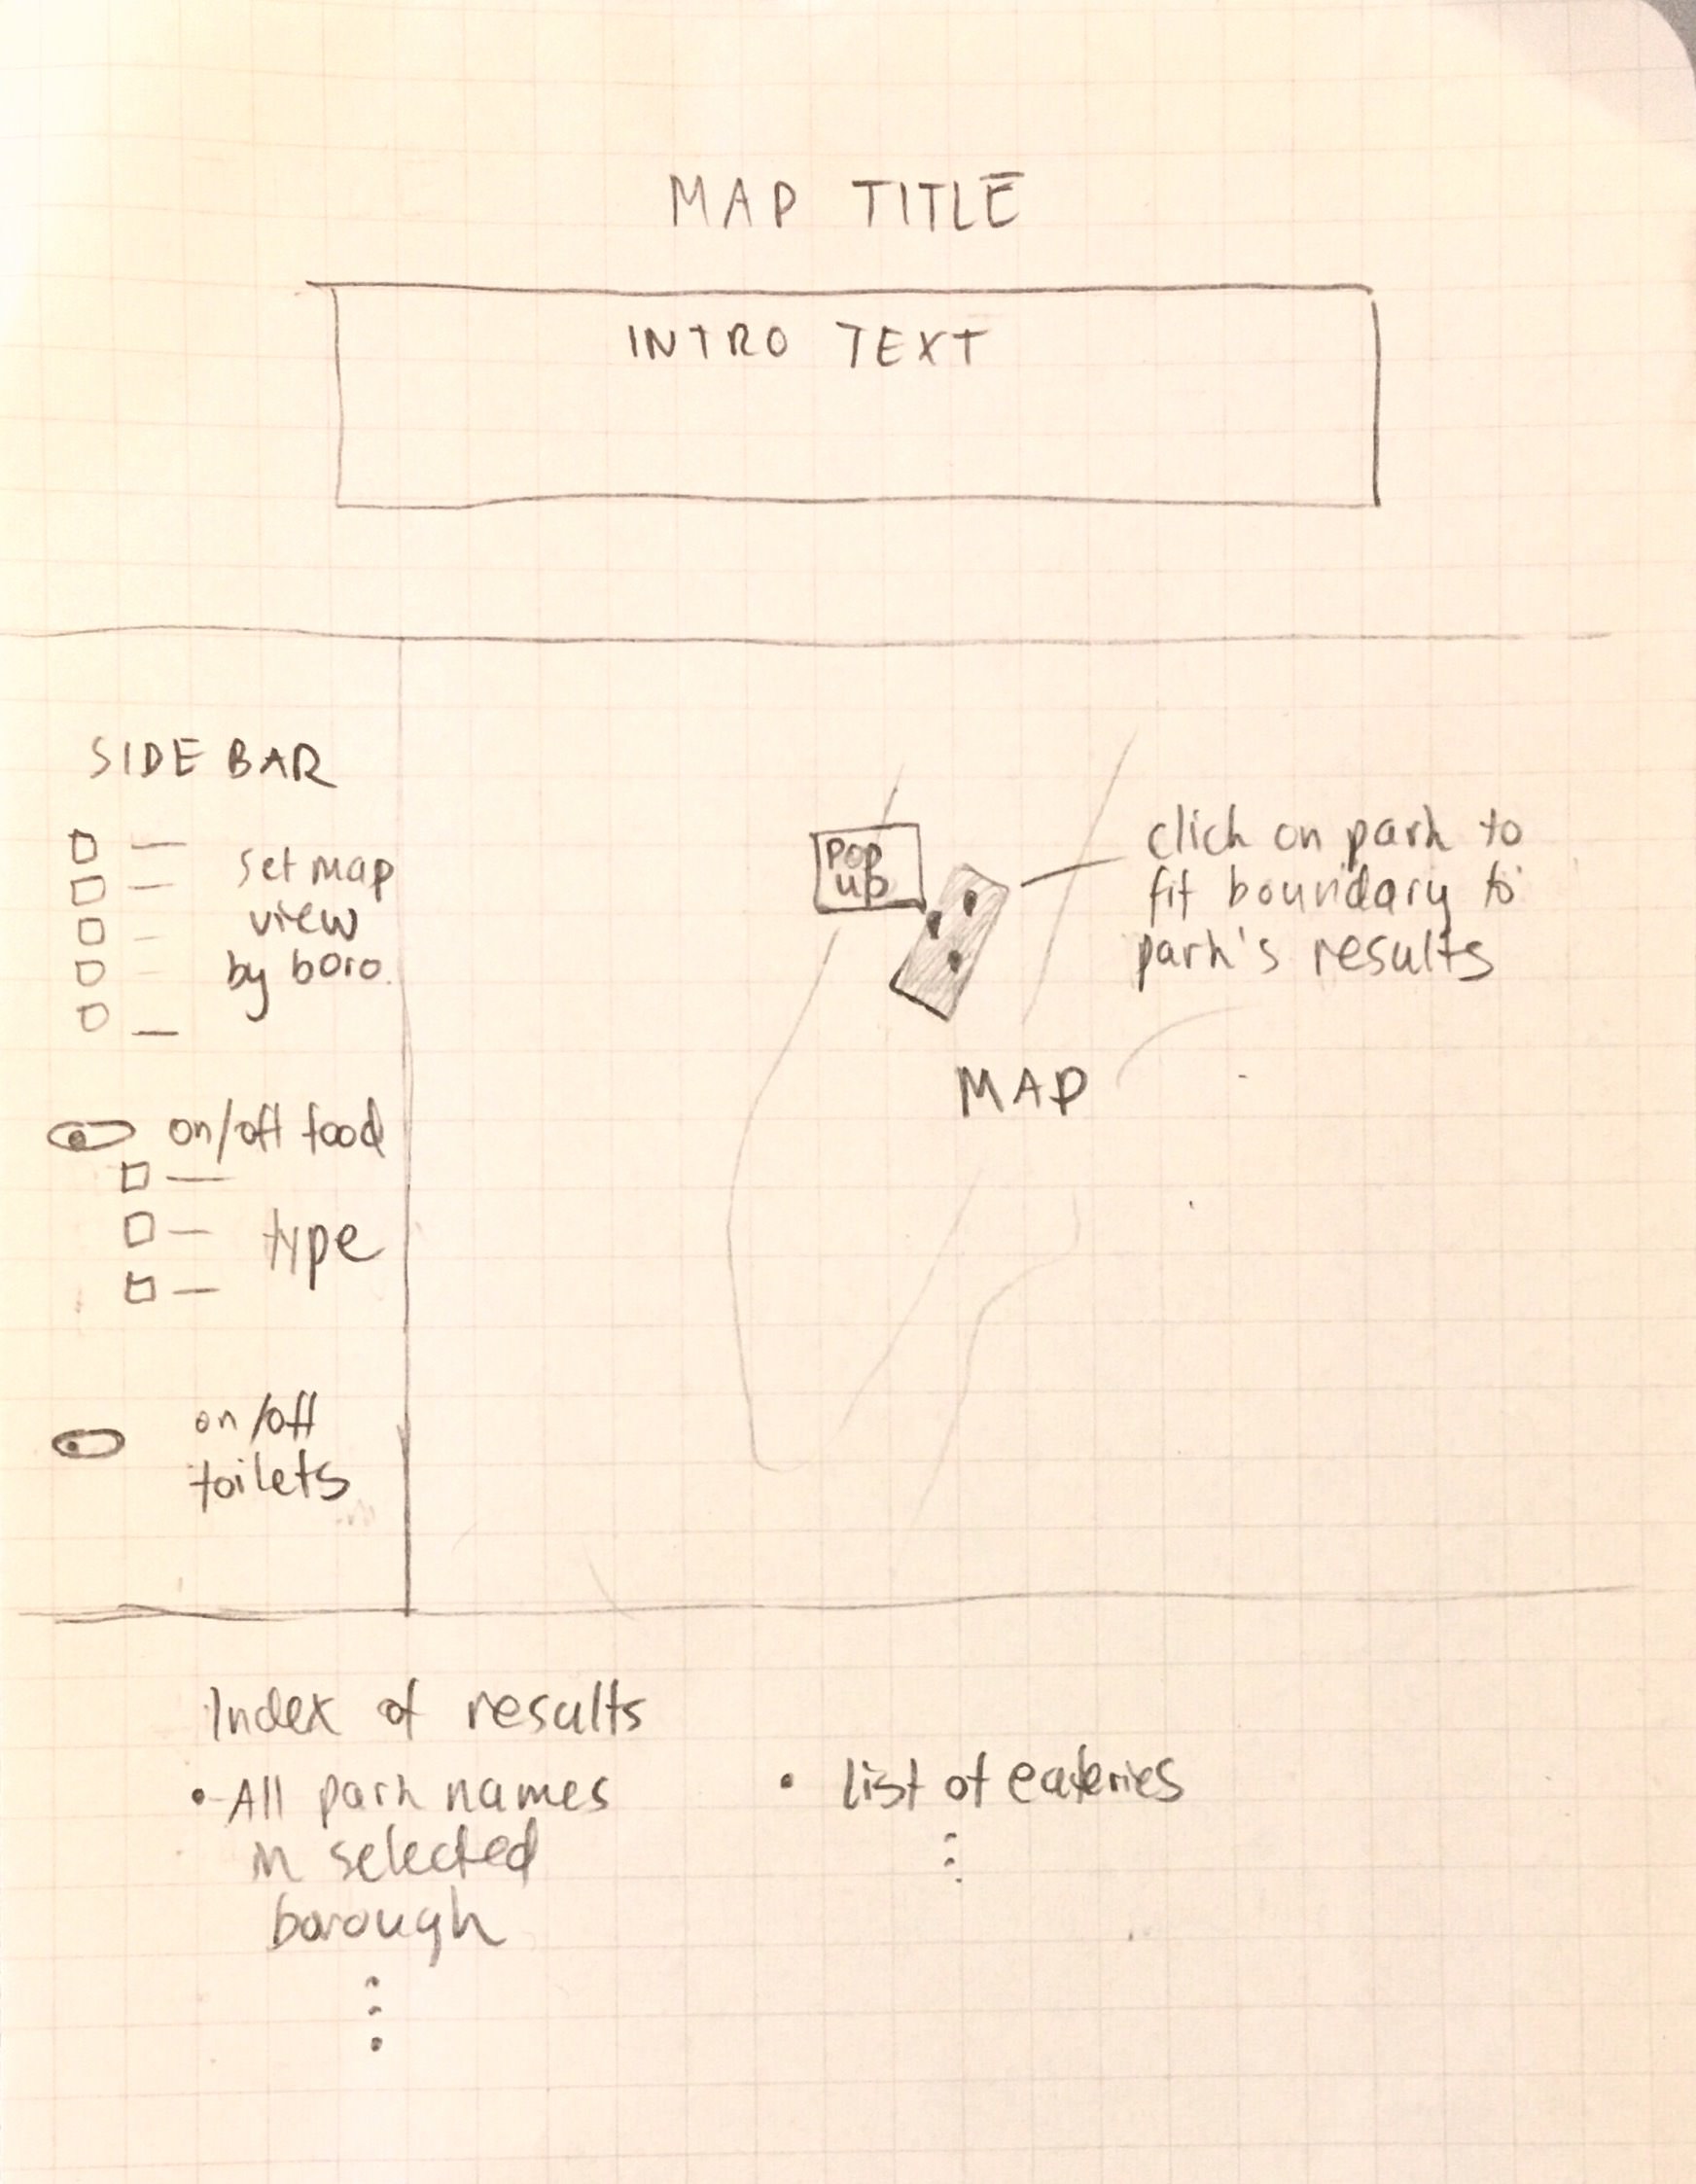 MAP TITLE
INTRO TEXT
SIDE BAR
set map
view
by boro.
on/off food
type
on/off
toilets
Pop
up
click on park to
fit boundary to
park's results
MAP
Index of results
• All park names
in selected
borough
• list of eateries